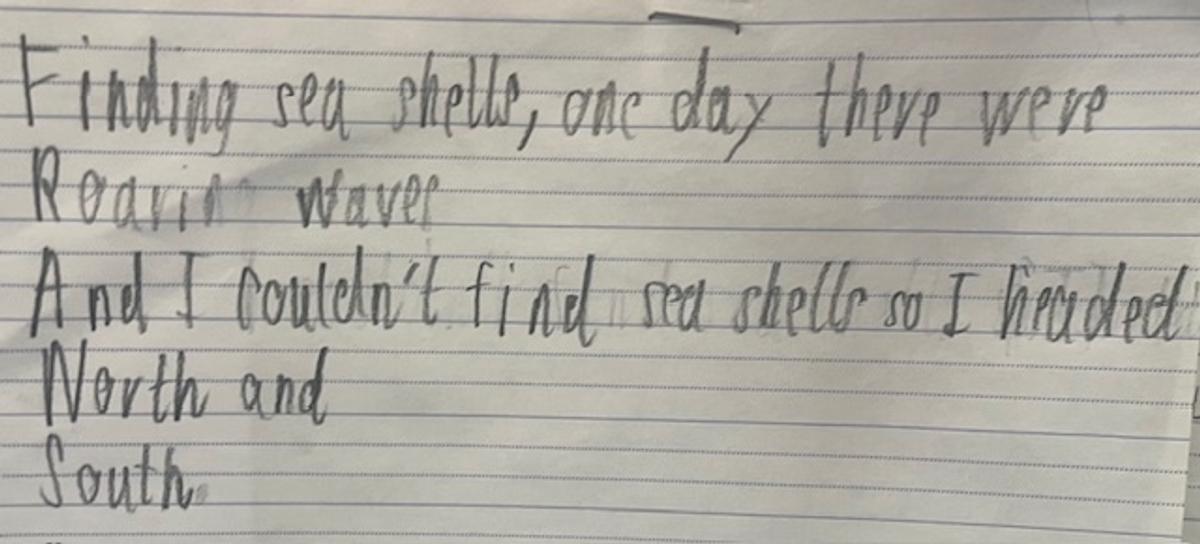 Finding sea shells, one day there were
Roarin waves
And I couldn't find sea shells so I headed
North and
South.